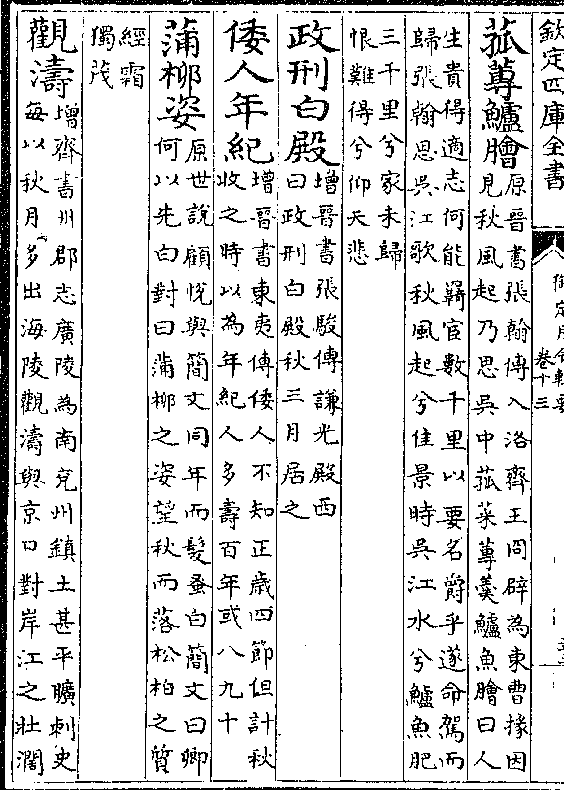 欽定四庫全書
御定月令輯要
卷十三
菰蓴鱸膾原晉書張翰傳入洛齊王冏辟為東曹掾因
見秋風起乃思吳中菰菜蓴羹鱸魚膾曰人
生貴得適志何能羈官數千里以要名爵乎遂命駕而
歸張翰思吳江歌秋風起兮佳景時吳江水兮鱸魚肥
三千里兮家未歸
恨難得兮仰天悲
政刑白殿增晉書張駿傳謙光殿西
曰政刑白殿秋三月居之
倭人年紀增晉書東夷傳倭人不知正歲四節但計秋
收之時以為年紀人多壽百年或八九十
蒲柳姿原世說顧悅與簡文同年而髮蚤白簡文曰卿
何以先白對曰蒲柳之姿望秋而落松柏之質
經霜
獨茂
觀濤增齊書州郡志廣陵為南兗州鎮土甚平曠刺史
每以秋月多出海陵觀濤與京口對岸江之壯濶